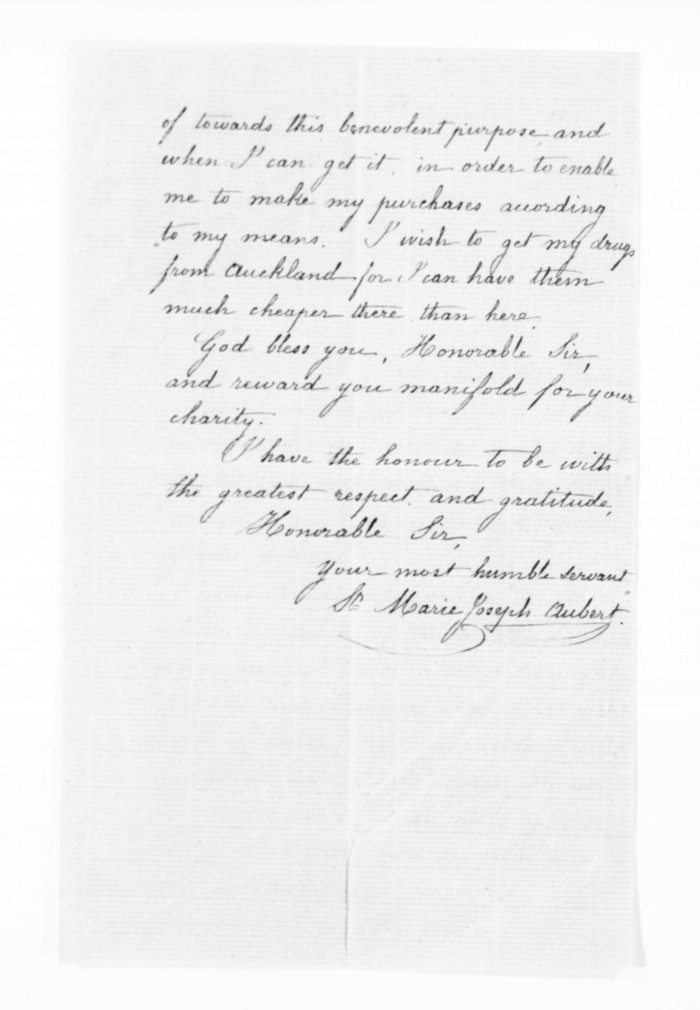 of towards this benevolent purpose, and
when I can get it, in order to enable
me to make my purchases according
to my means. I wish to get my drugs
from Auckland for I can have them
much cheaper there than here.
God bless you, Honorable Sir,
and reward you manifold for your
charity.
I have the honour to be with
the greatest respect and gratitude,
Honorable Sir,
your most humble servant
Sr Marie Joseph Aubert.